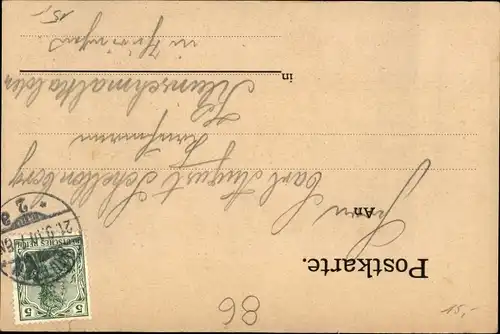 Postkarte.
An
Herrn
Carl August Schellenberg
Kaufmann
in Kleinschmalkalden
in Thüringen
DEUTSCHES REICH
5 5
21.9.01
86
15,-